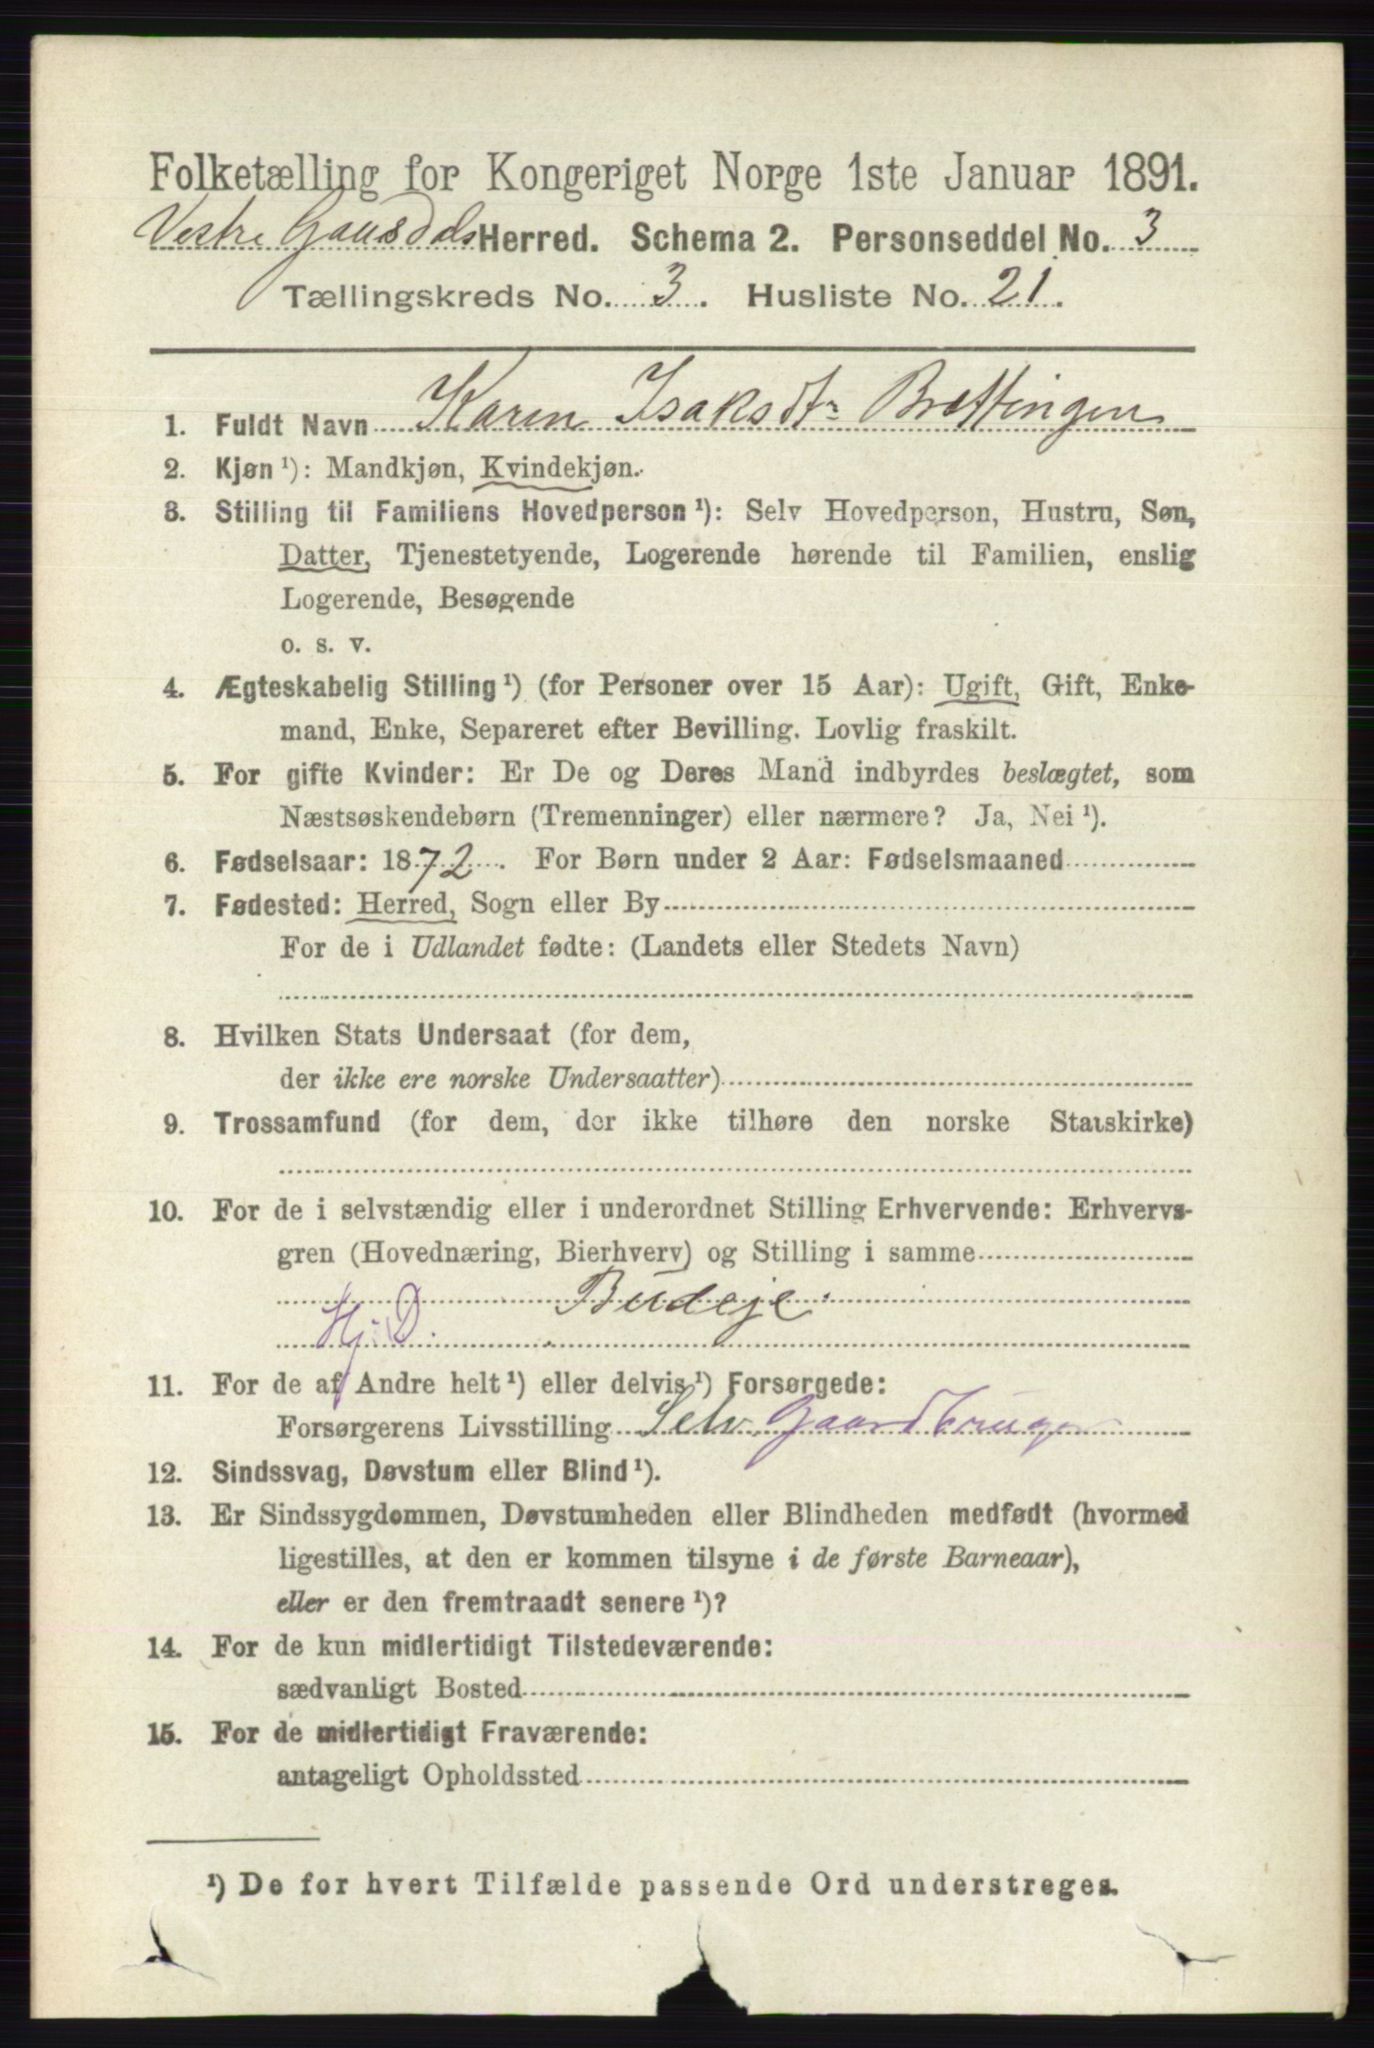 Folketælling for Kongeriget Norge 1ste Januar 1891.
Vestre Gausdals Herred. Schema 2. Personseddel No. 3
Tællingskreds No. 3. Husliste No. 21.
1. Fuldt Navn Karen Isaksdtr Brettingen
2. Kjøn ¹): Mandkjøn, Kvindekjøn.
3. Stilling til Familiens Hovedperson ¹): Selv Hovedperson, Hustru, Søn,
Datter, Tjenestetyende, Logerende hørende til Familien, enslig
Logerende, Besøgende
o. s. v.
4. Ægteskabelig Stilling ¹) (for Personer over 15 Aar): Ugift, Gift, Enke-
mand, Enke, Separeret efter Bevilling. Lovlig fraskilt.
5. For gifte Kvinder: Er De og Deres Mand indbyrdes beslægtet, som
Næstsøskendebørn (Tremenninger) eller nærmere? Ja, Nei ¹).
6. Fødselsaar: 1872. For Børn under 2 Aar: Fødselsmaaned
7. Fødested: Herred, Sogn eller By
For de i Udlandet fødte: (Landets eller Stedets Navn)
8. Hvilken Stats Undersaat (for dem,
der ikke ere norske Undersaatter)
9. Trossamfund (for dem, der ikke tilhøre den norske Statskirke)
10. For de i selvstændig eller i underordnet Stilling Erhvervende: Erhvervs-
gren (Hovednæring, Bierhverv) og Stilling i samme
Budeje.
Hj. D.
11. For de af Andre helt ¹) eller delvis ¹) Forsørgede:
Forsørgerens Livsstilling Selv. Gaardbruger
12. Sindssvag, Døvstum eller Blind ¹).
13. Er Sindssygdommen, Døvstumheden eller Blindheden medfødt (hvormed
ligestilles, at den er kommen tilsyne i de første Barneaar),
eller er den fremtraadt senere ¹)?
14. For de kun midlertidigt Tilstedeværende:
sædvanligt Bosted
15. For de midlertidigt Fraværende:
antageligt Opholdssted
¹) De for hvert Tilfælde passende Ord understreges.